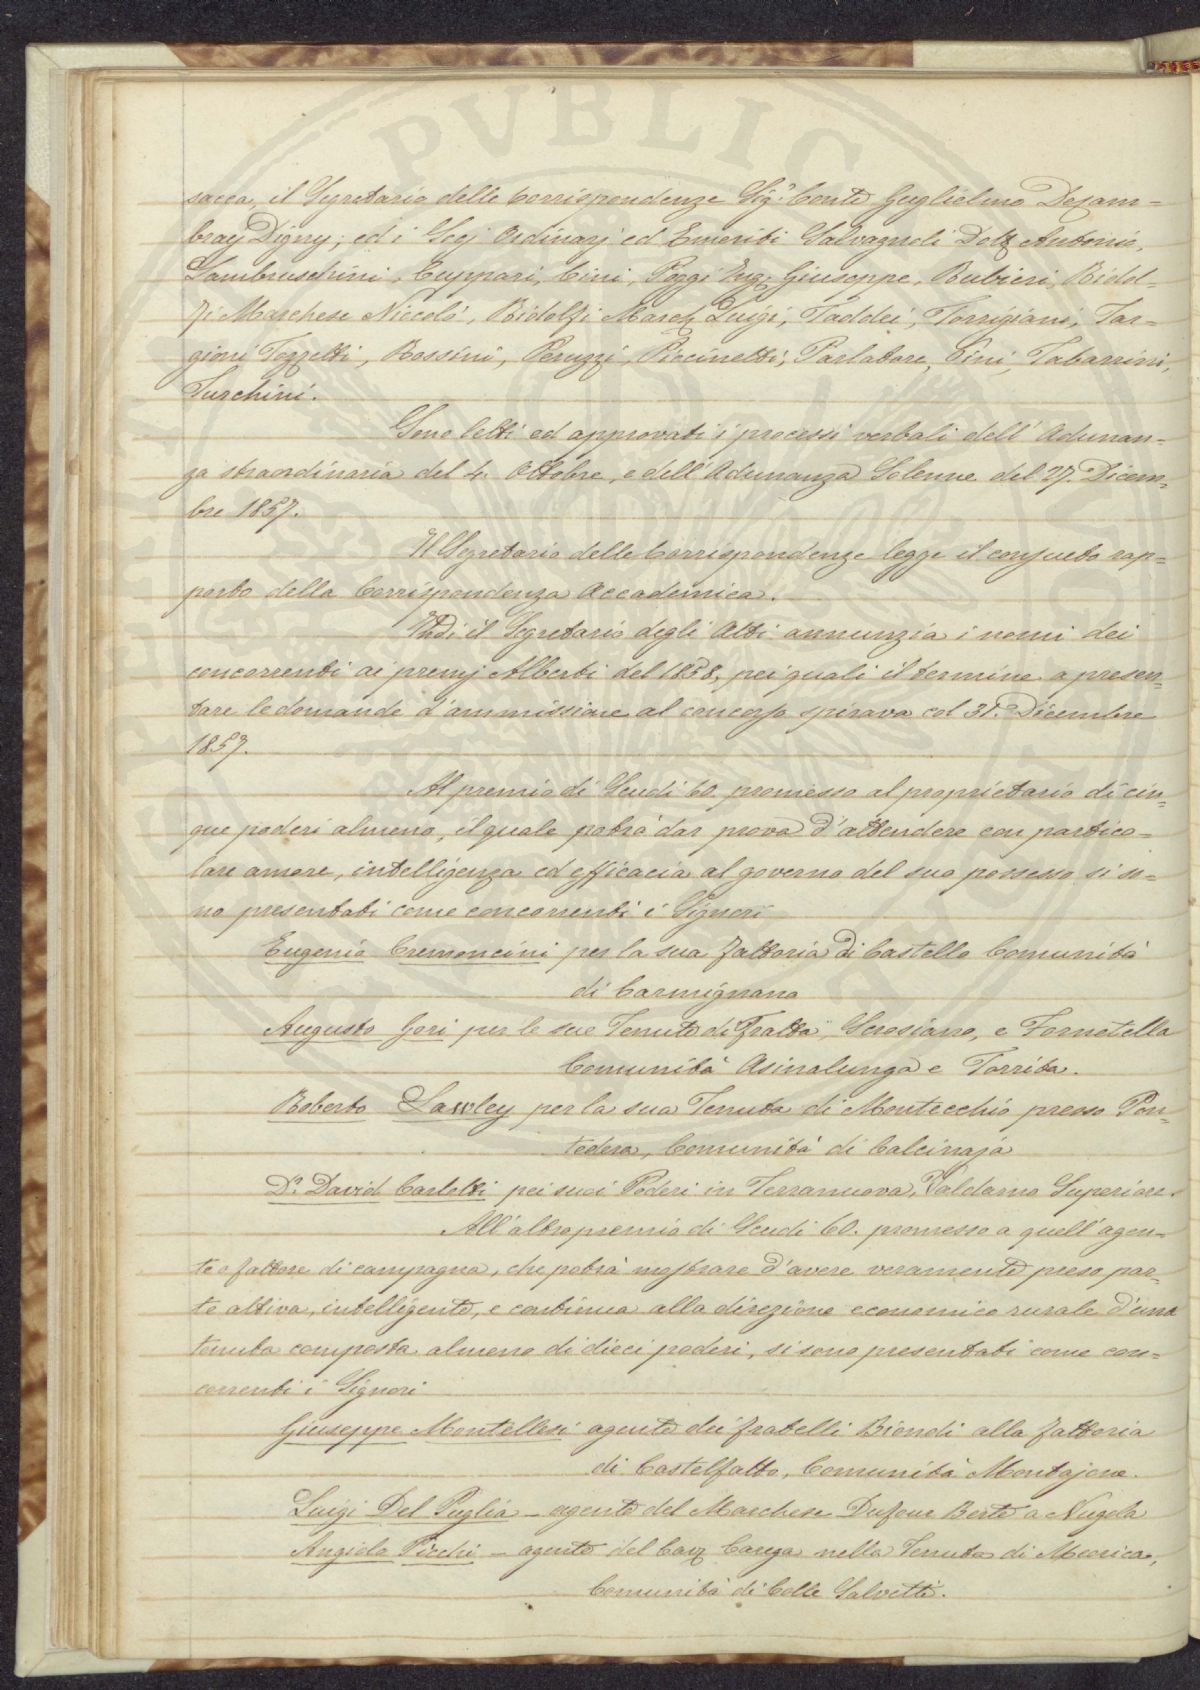 sacca, il Segretario delle Corrispondenze Sig.r Conte Guglielmo De Cam-
bray Digny; ed i Socj Ordinarj ed Emeriti Salvagnoli Dott Antonio,
Lambruschini, Cuppari, Cini, Poggi Ing. Giuseppe, Rubieri, Ridol-
fi Marchese Niccolò, Ridolfi March Luigi, Taddei, Torrigiani, Tar-
gioni Tozzetti, Rossini, Peruzzi, Piccinetti, Parlatore, Pini, Tabarrini,
Turchini.
Sono letti ed approvati i processi verbali dell' Adunan-
za straordinaria del 4. Ottobre, e dell' Adunanza Solenne del 27. Dicem-
bre 1857.
Il Segretario delle Corrispondenze legge il consueto rap-
porto della Corrispondenza Accademica.
Indi il Segretario degli Atti annunzia i nomi dei
concorrenti ai premj Alberti del 1858, pei quali il termine a presen-
tare le domande d'ammissione al concorso spirava col 31. Dicembre
1857.
Al premio di Scudi 60. promesso al proprietario di cin-
que poderi almeno, il quale potrà dar prova d'attendere con partico-
lare amore, intelligenza ed efficacia al governo del suo possesso si so-
no presentati come concorrenti i Signori
Eugenio Cremoncini per la sua fattoria di Castello Comunità
di Carmignano
Augusto Gori per le sue Tenute di Fratta, Scrosiano, e Fornetella
Comunità Asinalunga e Torrita.
Roberto Lawley per la sua Tenuta di Montecchio presso Pon-
tedera, Comunità di Calcinaja
D.r David Castelli pei suoi Poderi in Terranuova, Valdarno Superiore.
All'altro premio di Scudi 60. promesso a quell'agen-
te o fattore di campagna, che potrà mostrare d'avere veramente preso par-
te attiva, intelligente, e continua alla direzione economico rurale d'una
tenuta composta almeno di dieci poderi, si sono presentati come con-
correnti i Signori
Giuseppe Montellesi agente dei fratelli Biondi alla fattoria
di Castelfalfo, Comunità Montajone.
Luigi Del Puglia – agente del Marchese Dufour Berte a Nugola
Angiolo Pirchi – agente del Cav Carega nella Tenuta di
Comunità di Colle Salvetti.
PVBLIC